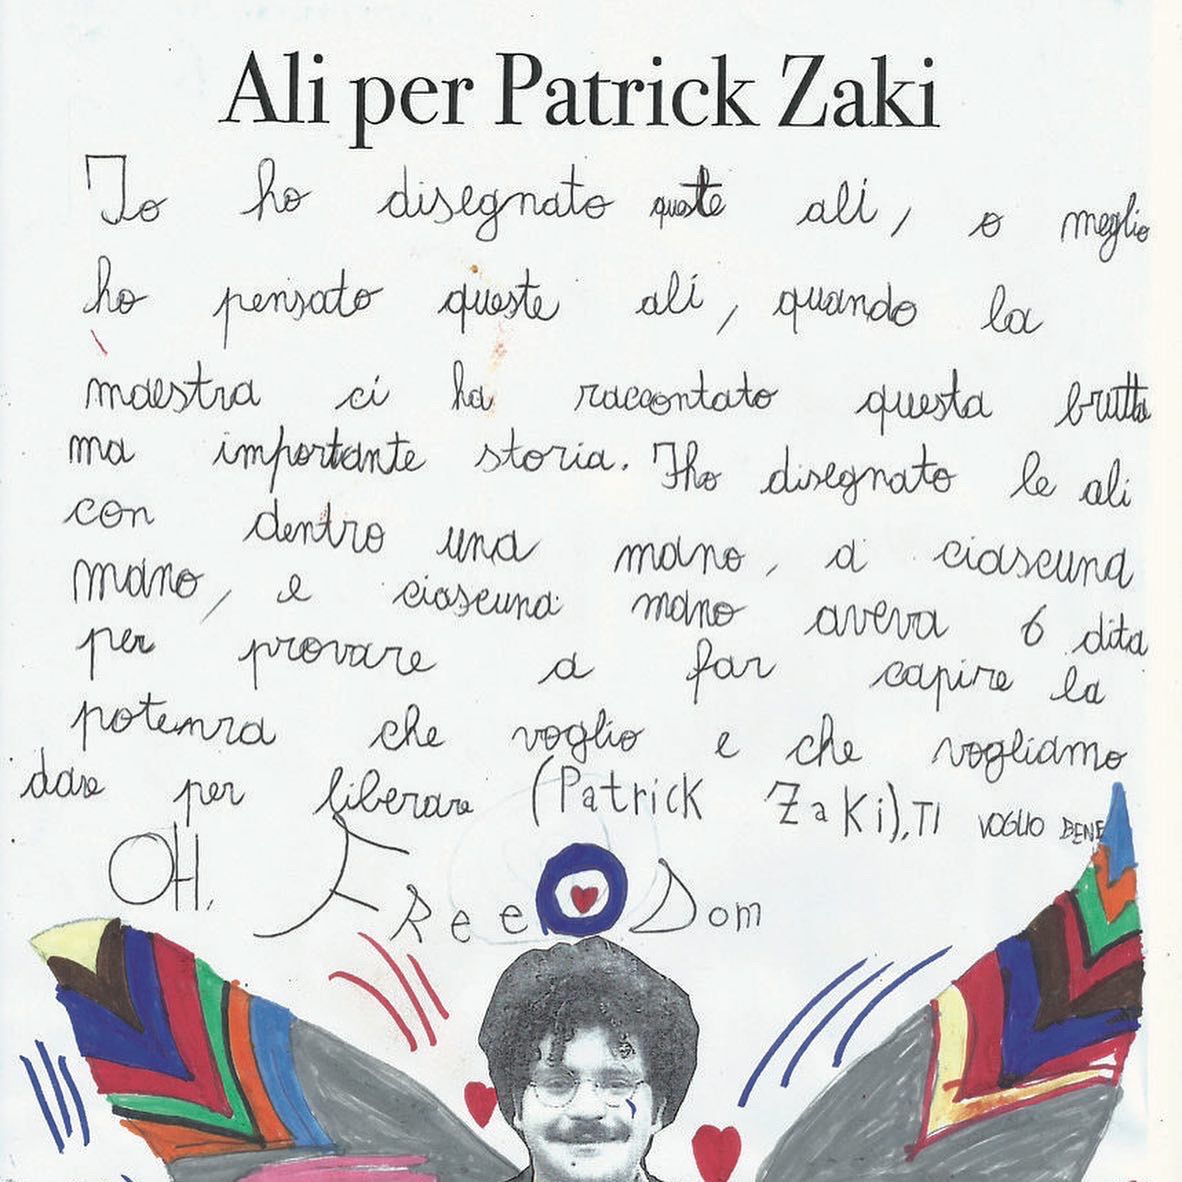 Ali per Patrick Zaki
Io ho disegnato queste ali, o meglio
ho pensato queste ali, quando la
maestra ci ha raccontato questa brutta
ma importante storia. Iho disegnato le ali
con dentro una mano, a ciascuna
mano, e ciascuna mano aveva 6 dita
per provare a far capire la
potenza che voglio e che vogliamo
dare per liberare (Patrick Zaki), TI VOGLIO BENE
OH, FReeDom